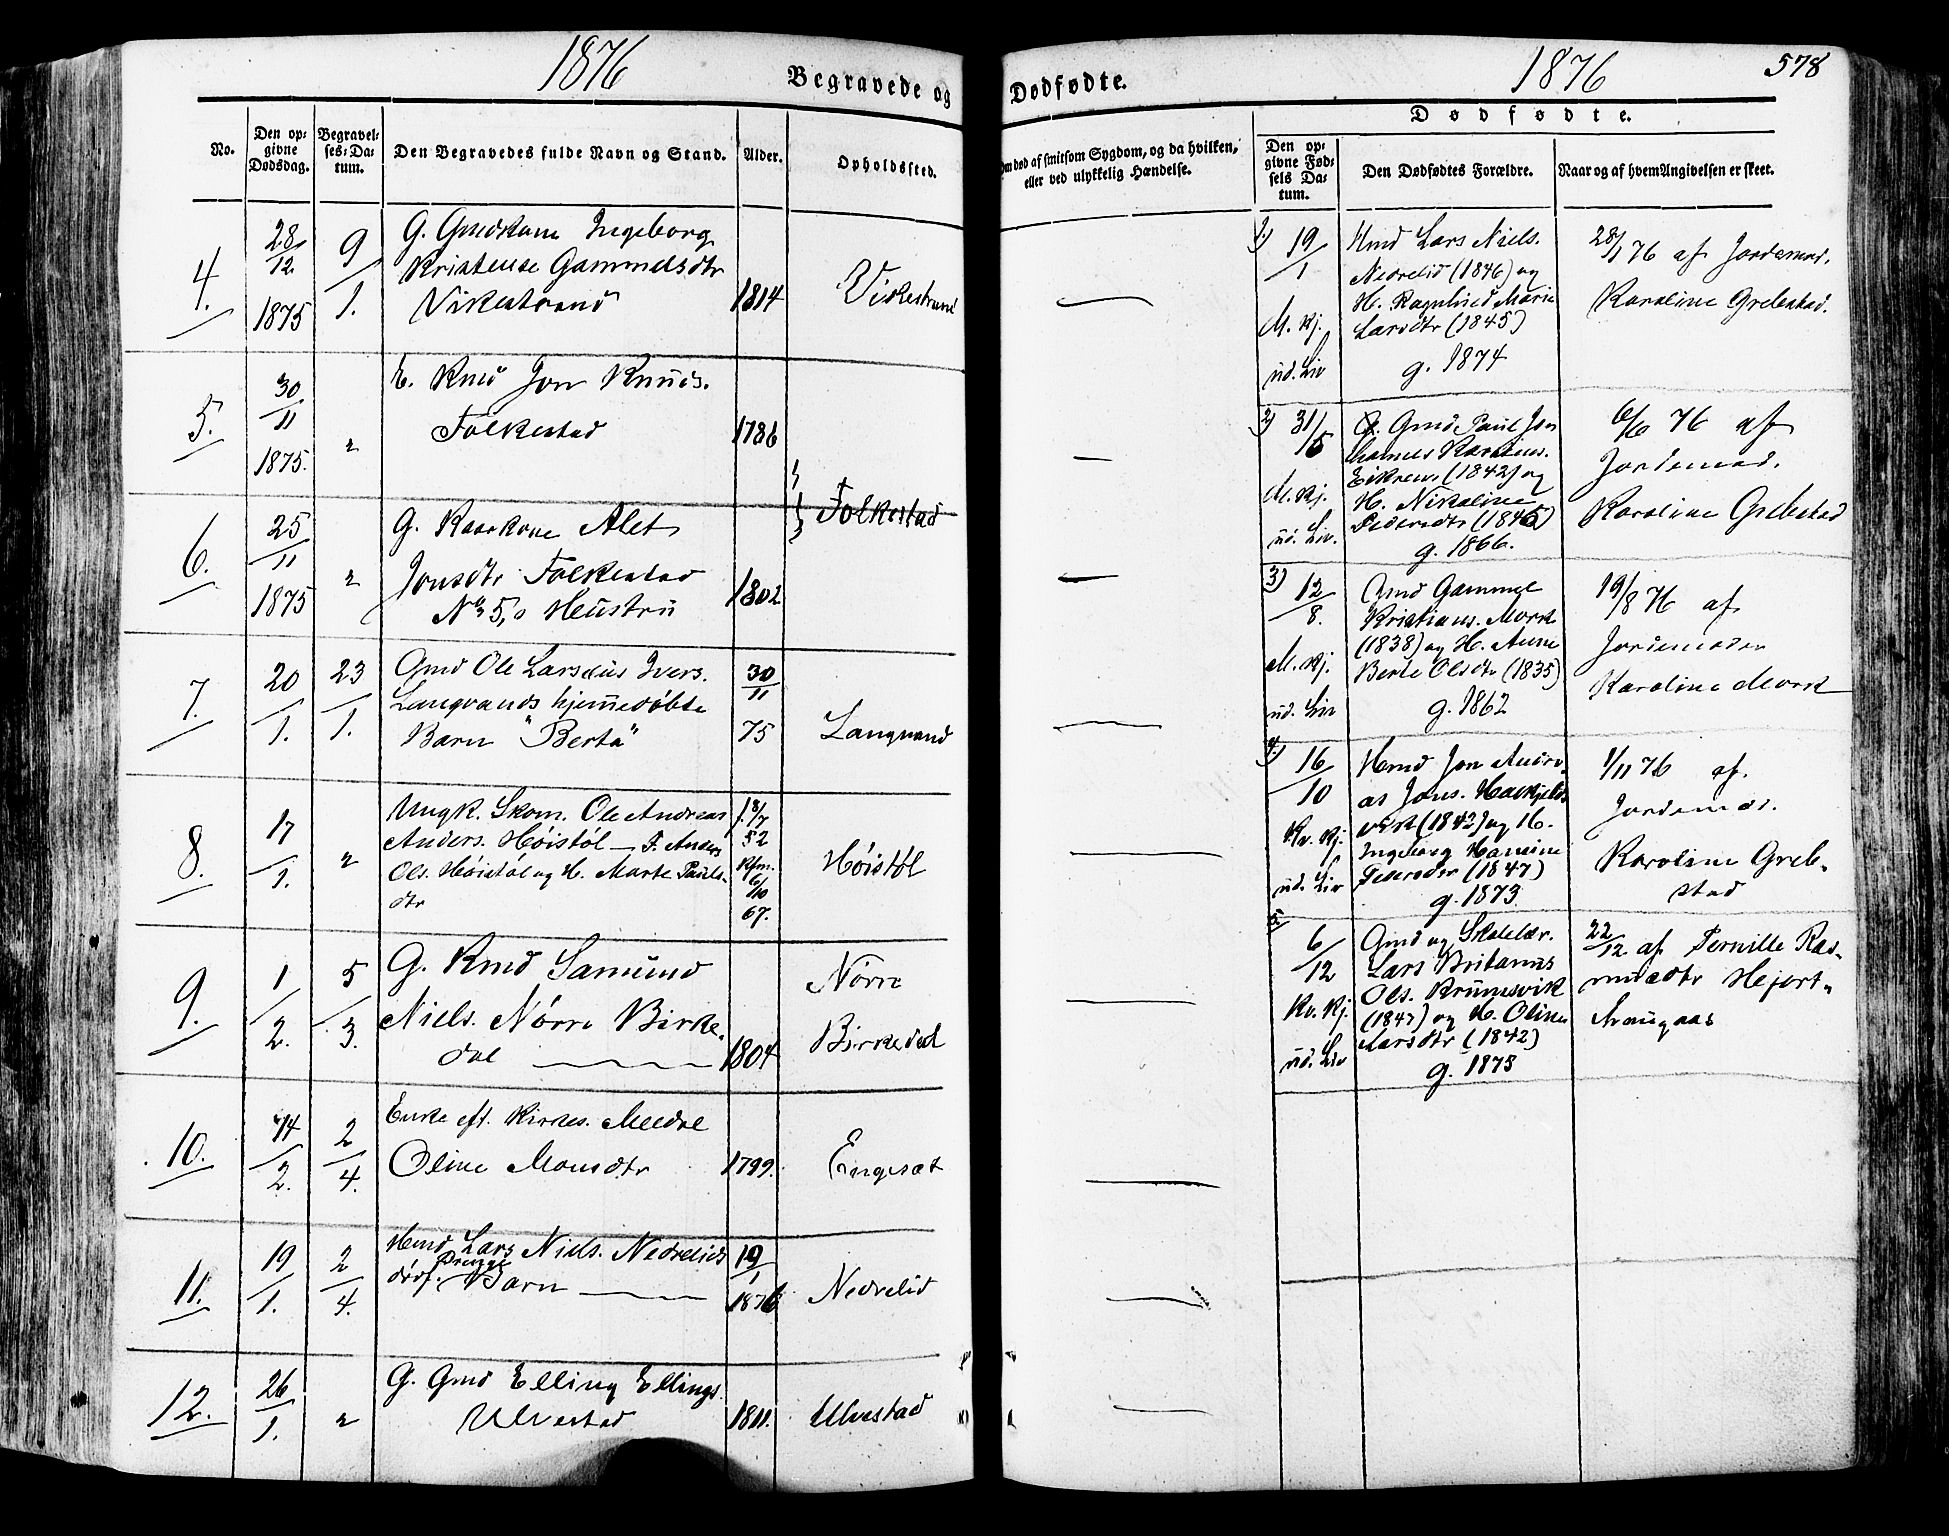 1876
Begravede og
No.
Den op=
givne
Dødsdag.
Begravel=
ses=Da=
tum.
Den Begravedes fulde Navn og Stand.
Alder.
Opholdssted.
4.
28/12 1875
9/1.
G. Gmdskone Ingeborg
Kristense Gammelsdtr
Vikestrand
1814
Vikestrand
5.
30/11 1875.
"
E. Kmd Jon Knuds.
Folkestad
1786
Folkestad
6.
25/11 1875
"
G. Kaarkone Alet
Jonsdtr Folkestad
No 5,s Heustru
1802
7.
20/1.
23/1.
Gmd Ole Larsens Ivers.
Langvands hjemmedøbte
Barn "Berta"
30/11
75
Langvand
8.
17/1.
"
Ungk. Skom. Ole Andreas
Anders. Høistøl — F. Anders
Ols. Høistøl og H. Marte Pauls-
dtr
f. 18/7
52
Kfm.
6/10
67.
Høistøl
9.
1/2.
5/3.
G. Kmd Samund
Niels. Nørre Birke-
dal
1804
Nørre
Birkedal
10.
14/2.
2/4.
Enke eft. Kirkes. Meldal
Oline Monsdtr
1799.
Engeset
11.
19/1.
2/4.
Hmd Lars Niels. Nedrelids
dødf. Drenge
Barn
19/1
1876
Nedrelid
12.
26/1.
"
G. Gmd Elling Ellings.
Ulvestad
1811.
Ulvestad
Dødfødte.
1876
578
Om død af smitsom Sygdom, og da hvilken,
eller ved ulykkelig Hændelse.
Dødfødte.
Den op=
givne Fød=
sels Da=
tum.
Den Dødfødtes Forældre.
Naar og af hvem Angivelsen er skeet.
1)
19/1
M. Kj.
ud. Liv
Hmd Lars Niels.
Nedrelid (1846) og
H. Ragnhild Marie
Larsdtr (1845)
g. 1874
28/1 76 af Jordemod.
Karoline Grebstad.
2)
31/5
M. Kj.
ud. Liv.
Gmd Paul Jon
Eikrem (1842) og
H. Nikoline
Pedersdtr (1845)
g. 1866.
6/6 76 af
Jordemod.
Karoline Grebstad
3)
12/8.
M. Kj.
ud. Liv
Gmd Gammel
Kristians. Mork
(1838) og H. Anne
Berte Olsdtr (1835)
g. 1862
19/8 76 af
Jordemoder
Karoline Mork
4)
16/10
Kv. Kj.
ud. Liv
Hmd Jon Andre-
as Jons. Havkjelds
vik (1842) og H.
Ingeborg Hansine
Pedersdtr (1847)
g. 1873
1/11 76 af.
Jordemod.
Karoline Greb-
stad
5.
6/12
Kv. Kj.
ud. Liv
Gmd og Skolelær.
Lars Britanus
Ols. Krumsvik
(1847) og H. Oline
Larsdtr (1842)
g. 1875
22/12 af Pernille Ras-
musdtr Hejort-